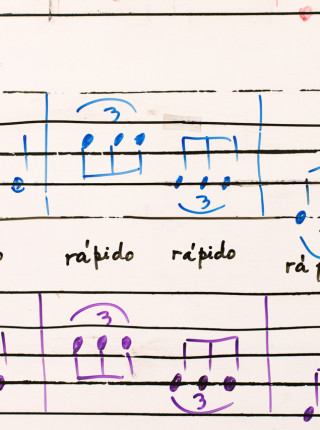 3
3
rápido rápido rá
3
3